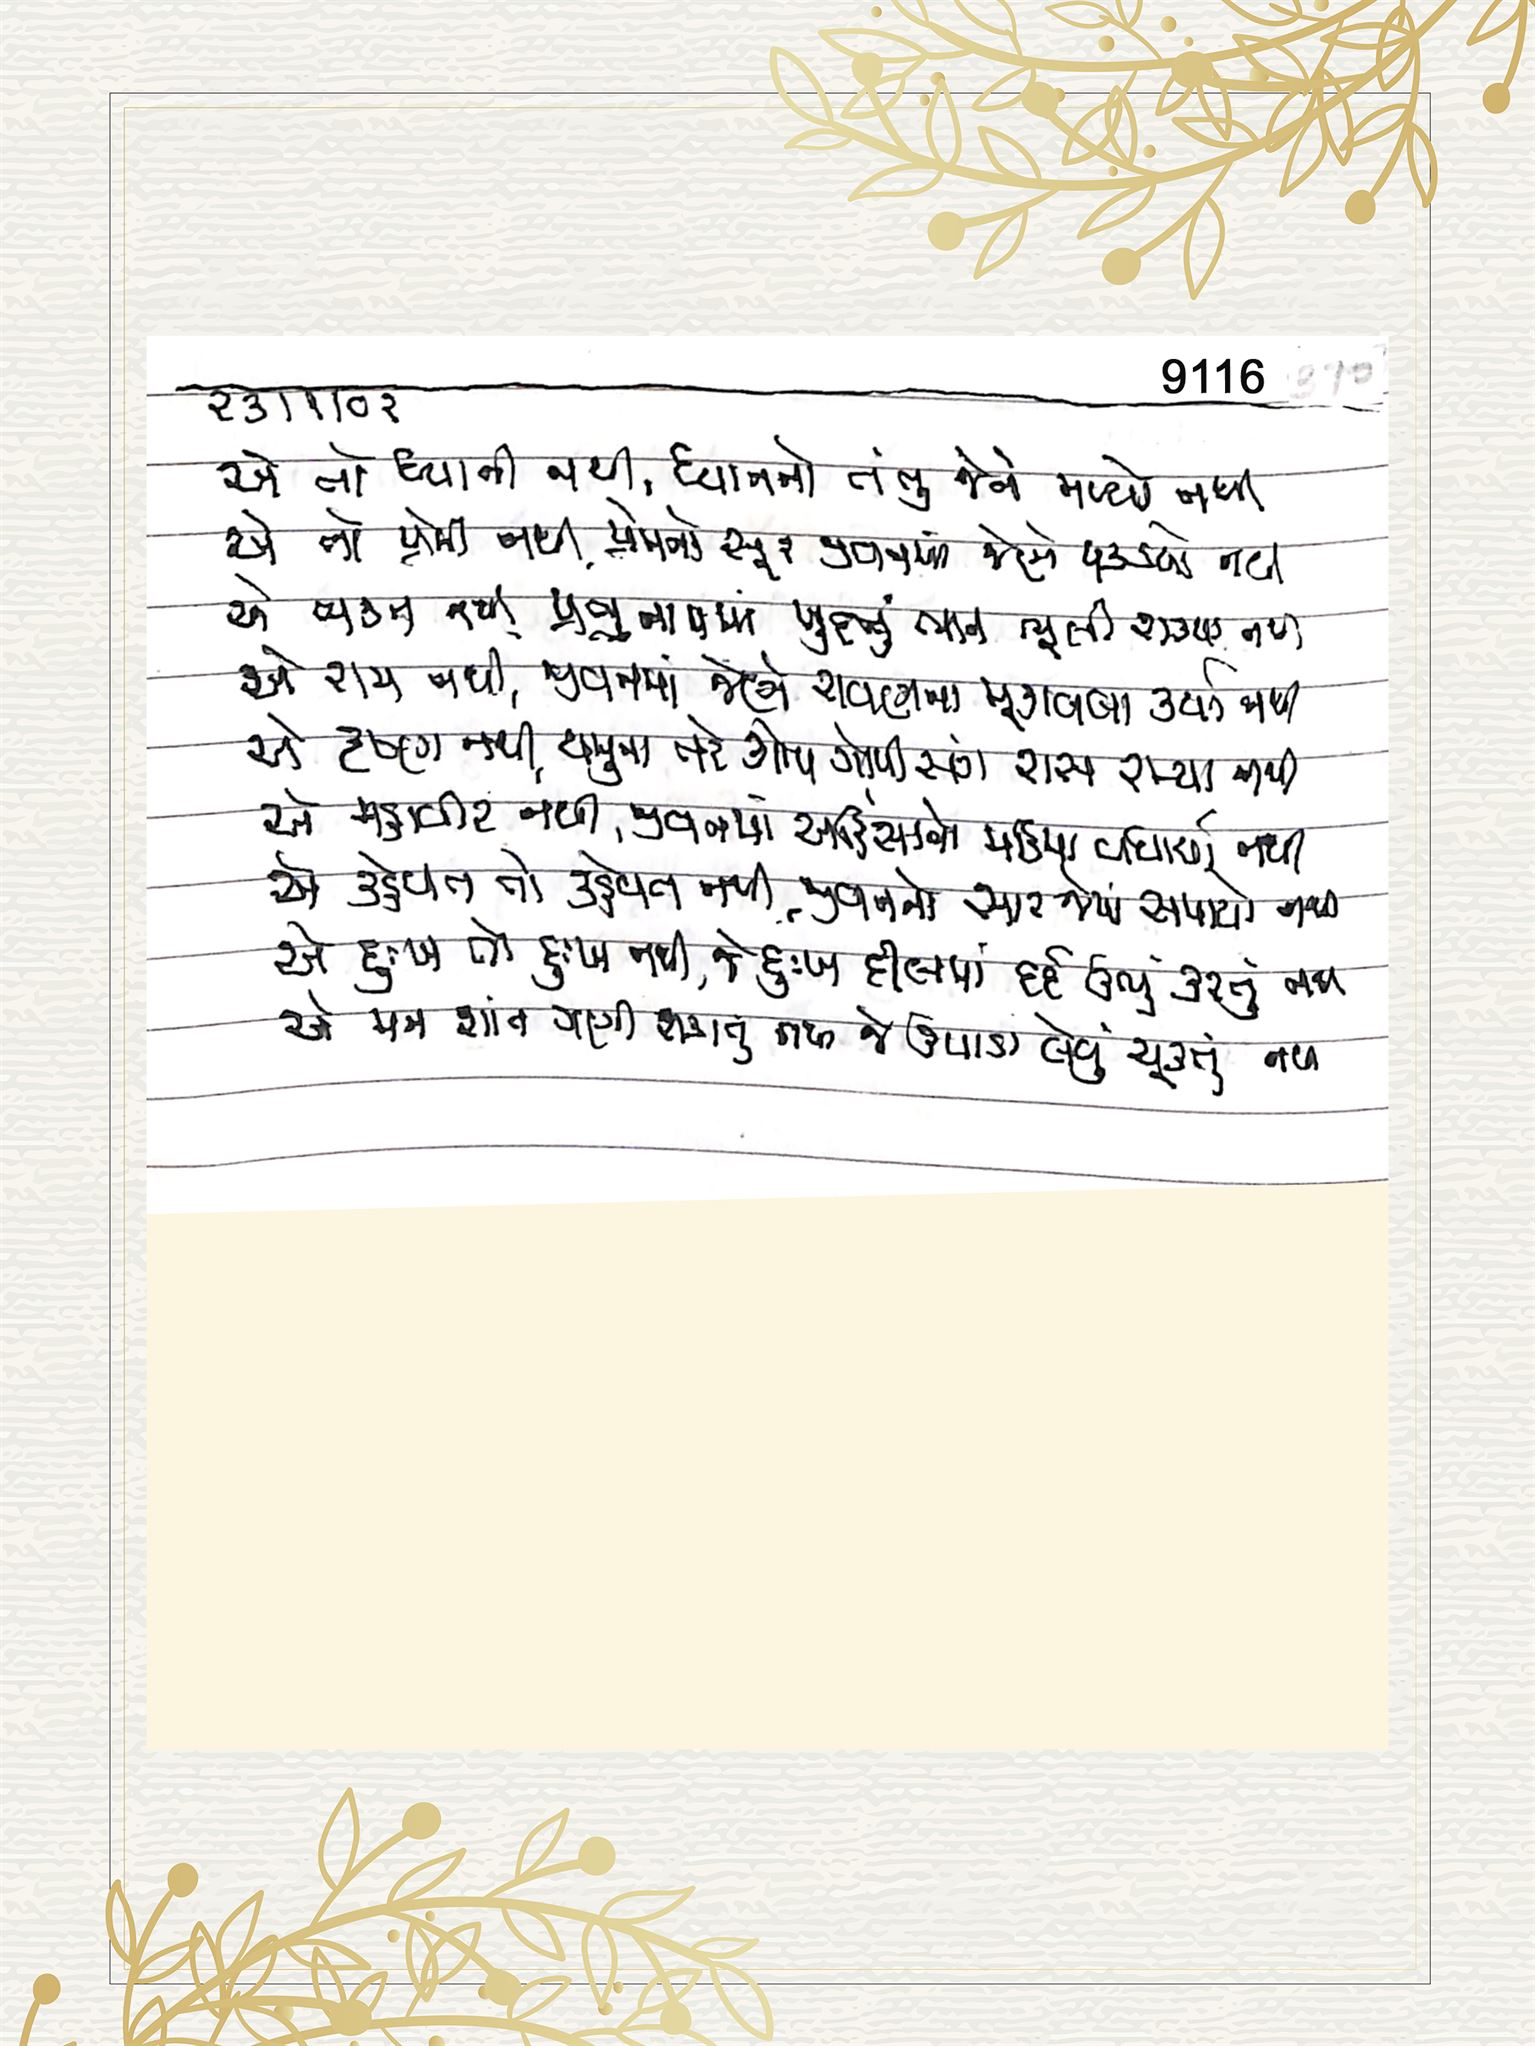 9116
૨૩।૧।૦૨
એ તો ધ્યાની નથી, ધ્યાનનો તંતુ જેને મળ્યો નથી
એ તો પ્રેમી નથી, પ્રેમનો સૂર જીવનમાં જેણે પકડયો નથી
એ ભક્ત નથી, પ્રભુ નામમાં ખુદનું ભાન ભૂલી શક્યા નથી
એ રામ નથી, જીવનમાં જેણે રાવણના મૂકાબલા કર્યા નથી
એ કૃષ્ણ નથી, યમુના તીરે ગોપ ગોપી સંગ રાસ રમ્યા નથી
એ મહાવીર નથી, જીવનમાં અહિંસાનો મહિમા વધાર્યો નથી
એ કહેવત તો કહેવત નથી, જીવનનો સાર જેમાં સમાયો નથી
એ દુઃખ તો દુઃખ નથી, જે દુઃખ દીલમાં દર્દ ઉભું કરતું નથી
એ મન શાંત ગણી શકાતું નથી જે ઉપાડા લેવું ચૂકતું નથી